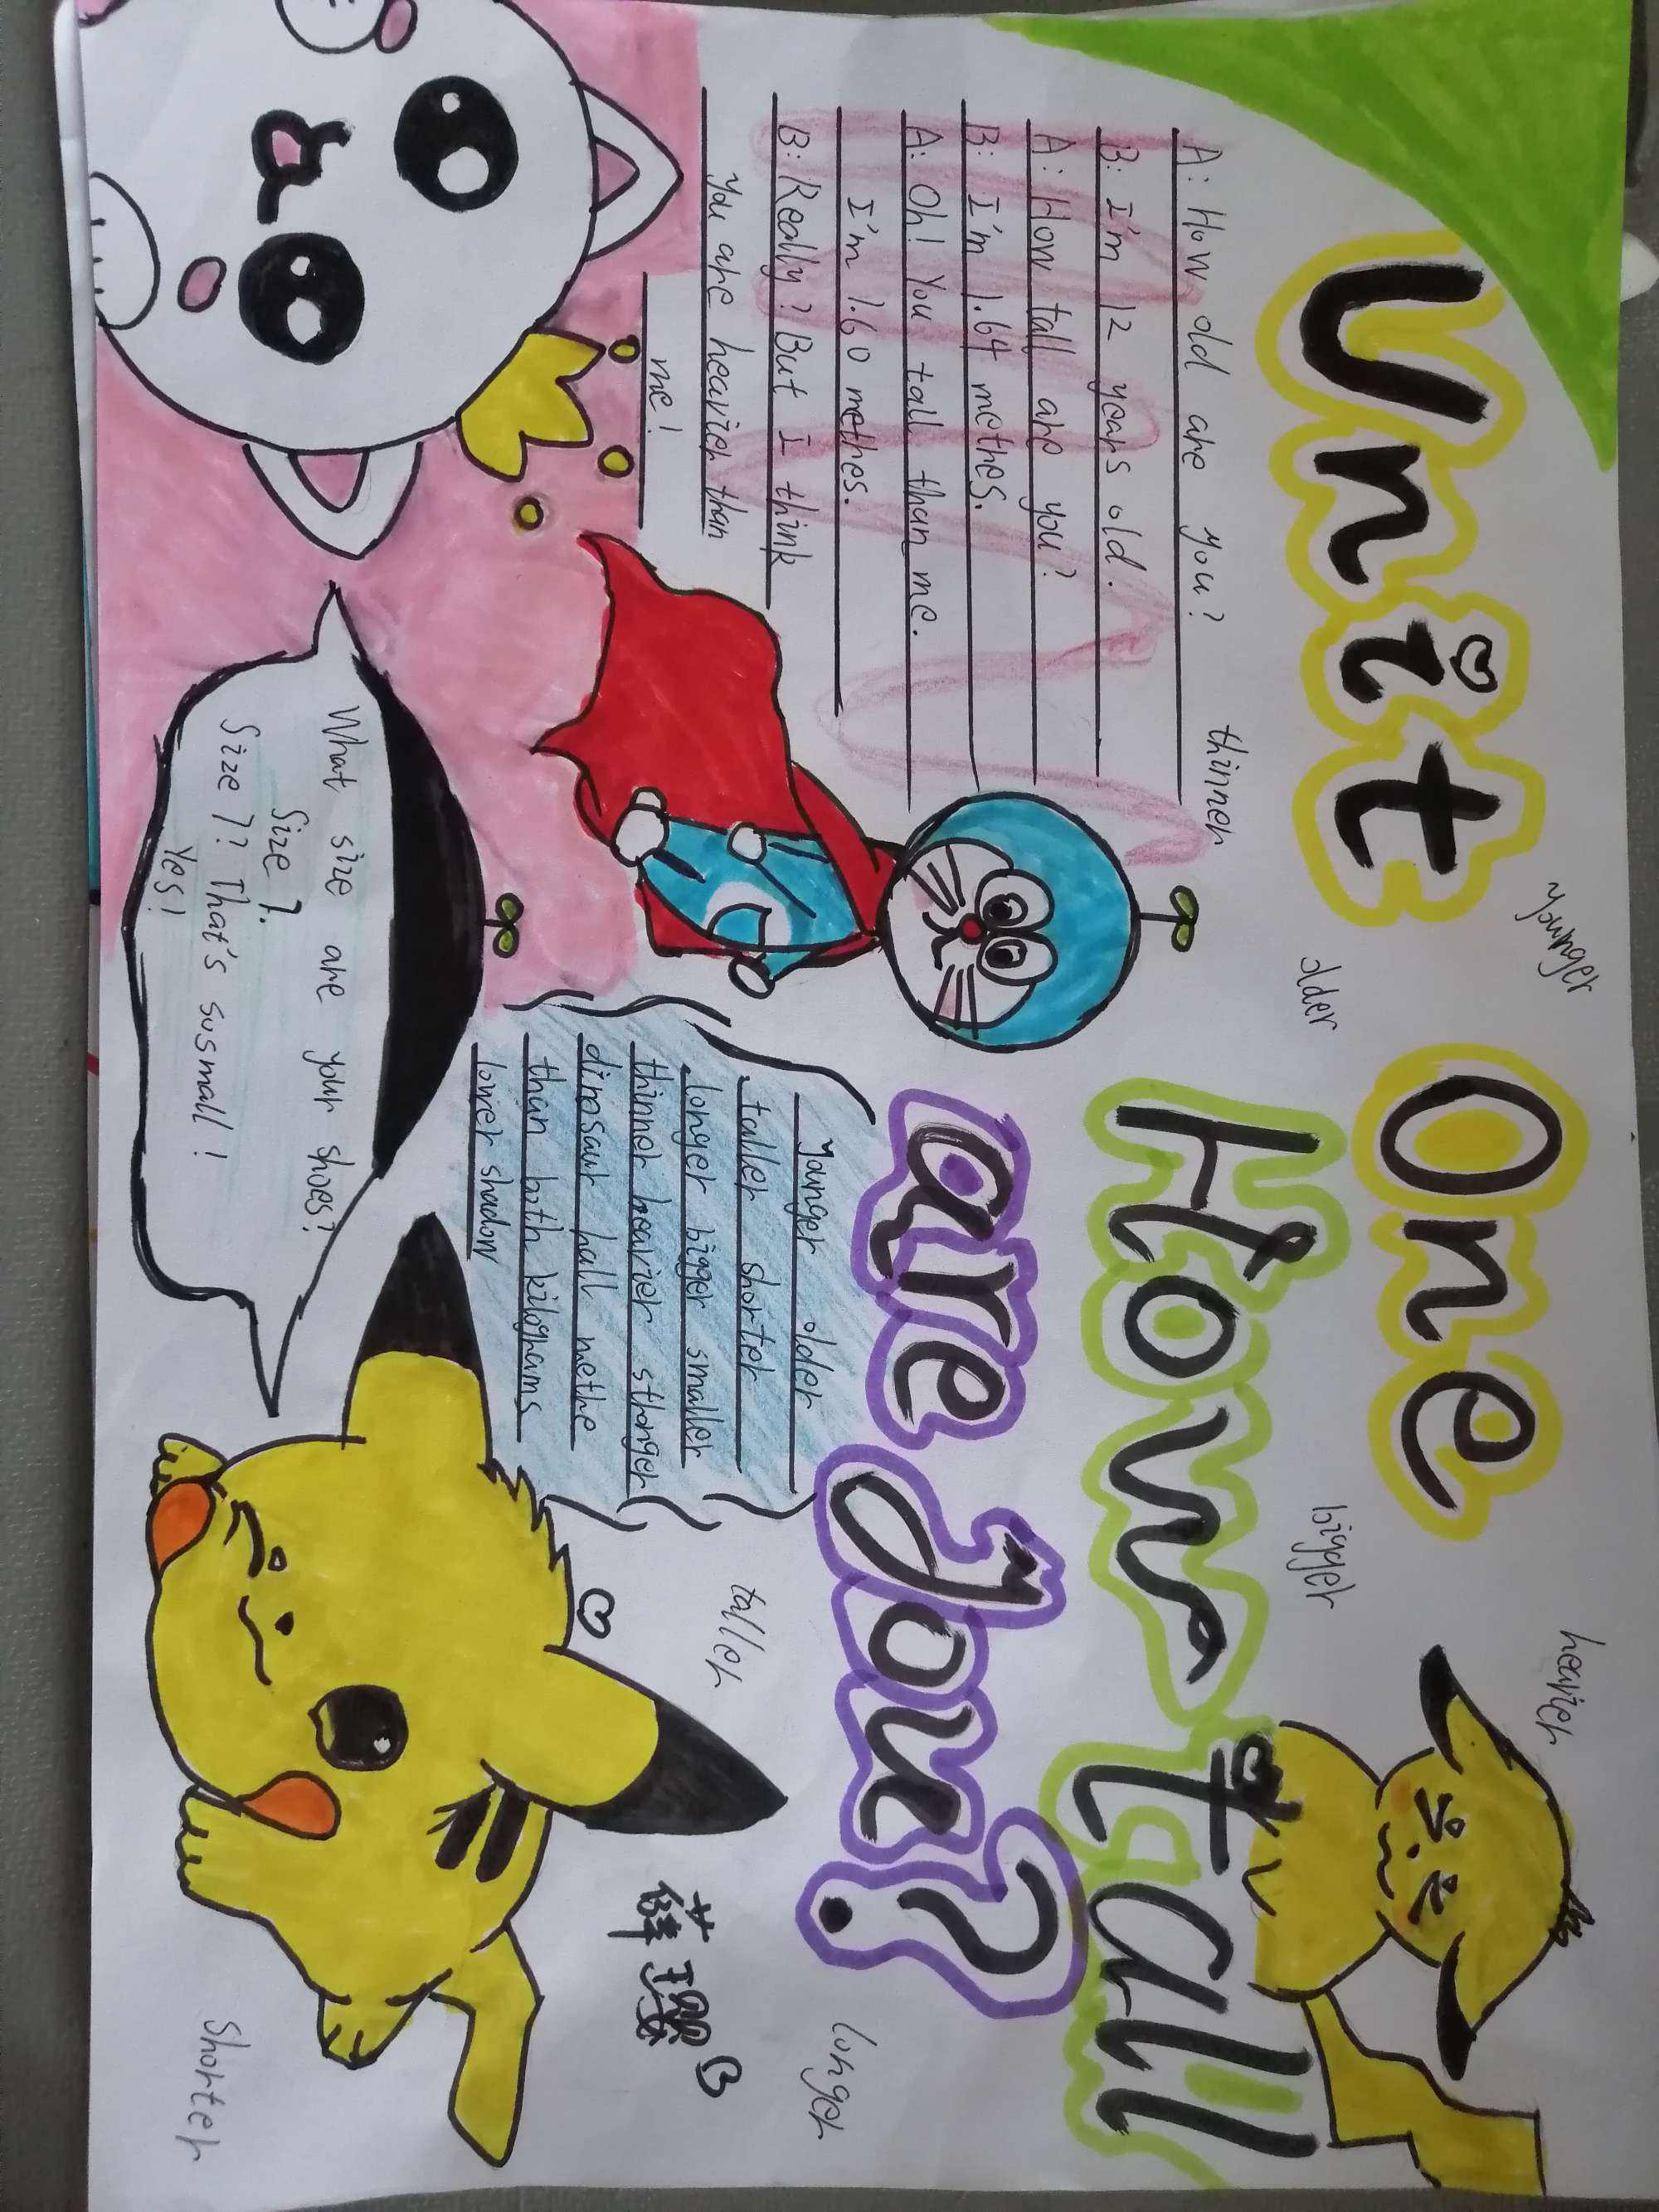 Unit One
How tall
are you?
younger
older
thinner
bigger
heavier
A: How old are you?
B: I'm 12 years old.
A: How tall are you?
B: I'm 1.64 methes.
A: Oh! You tall than me.
I'm 1.60 methes.
B: Really? But I think
you are heavier than
me!
younger older
taller shorter
longer bigger smaller
thinner heavier stronger
dinosaur hall methe
than both kilograms
lower shadow
What size are your shoes?
Size 7.
Size 7? That's susmall!
Yes!
taller
longer
shorter